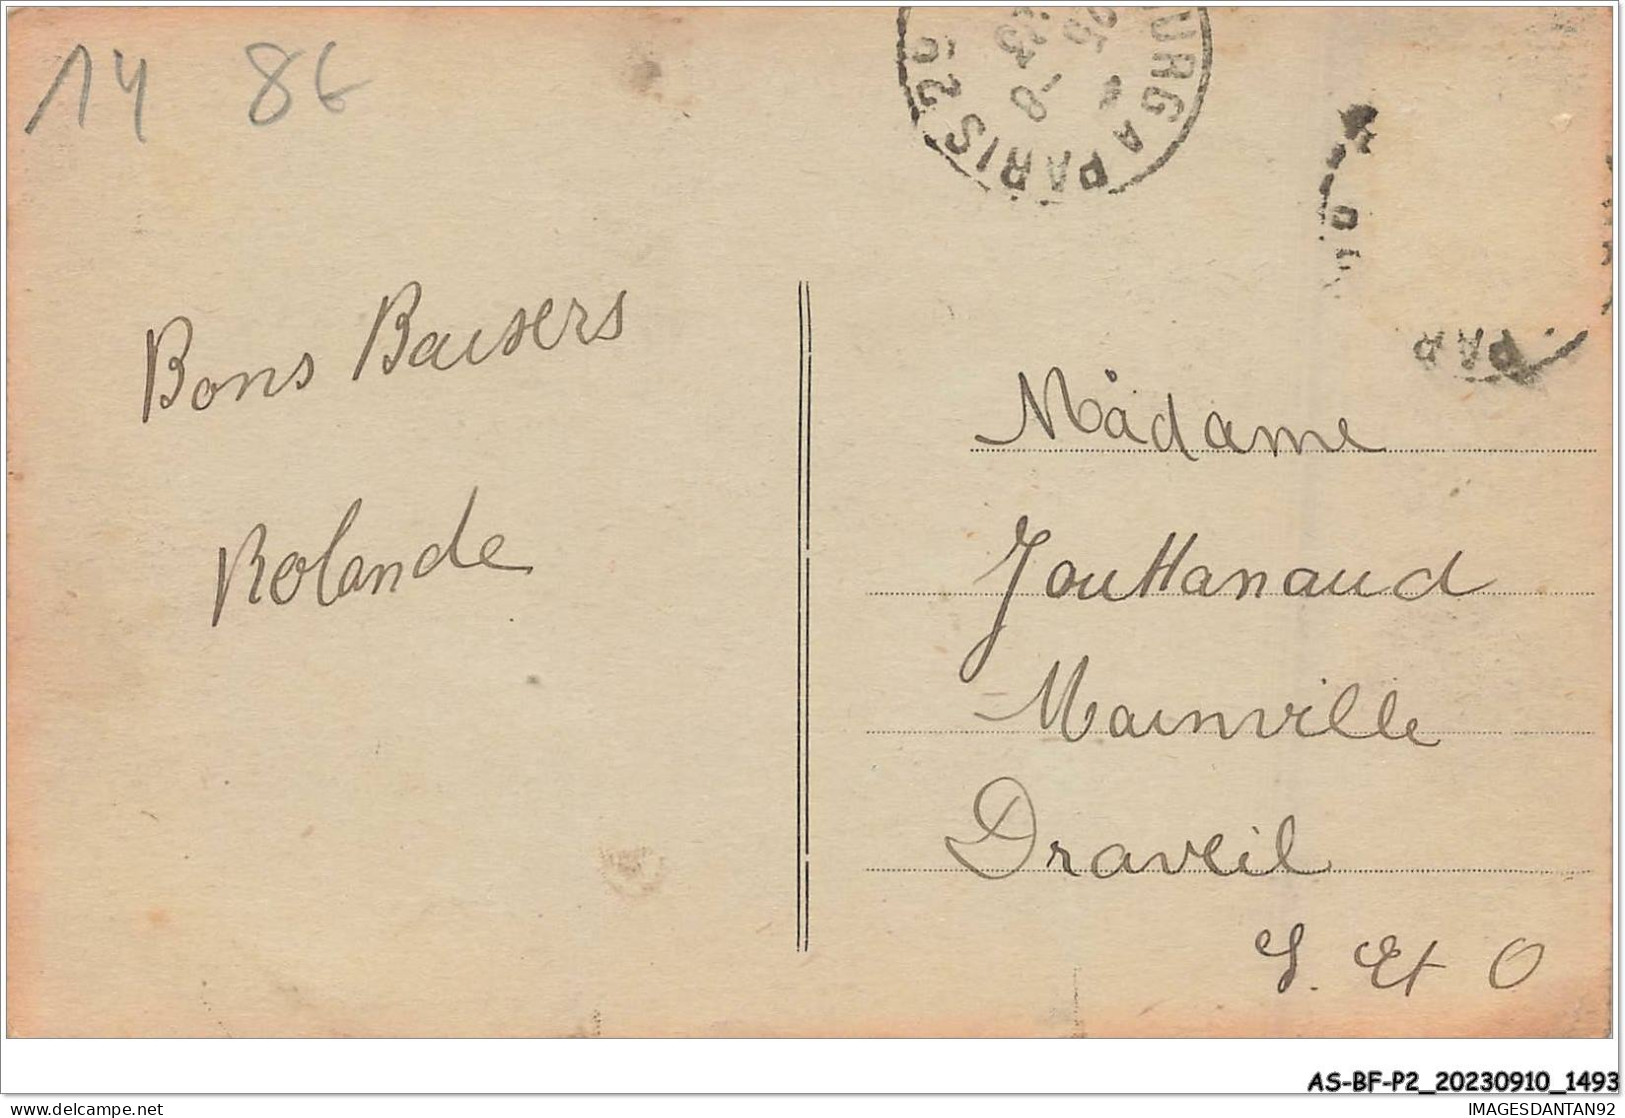 14 86
URG A PARIS
Bons Baisers
Rolande
PAR
Madame
Jouttanaud
Mainville
Draveil
S. Et O
AS-BF-P2_20230910_1493
delcampe.net
IMAGESDANTAN92